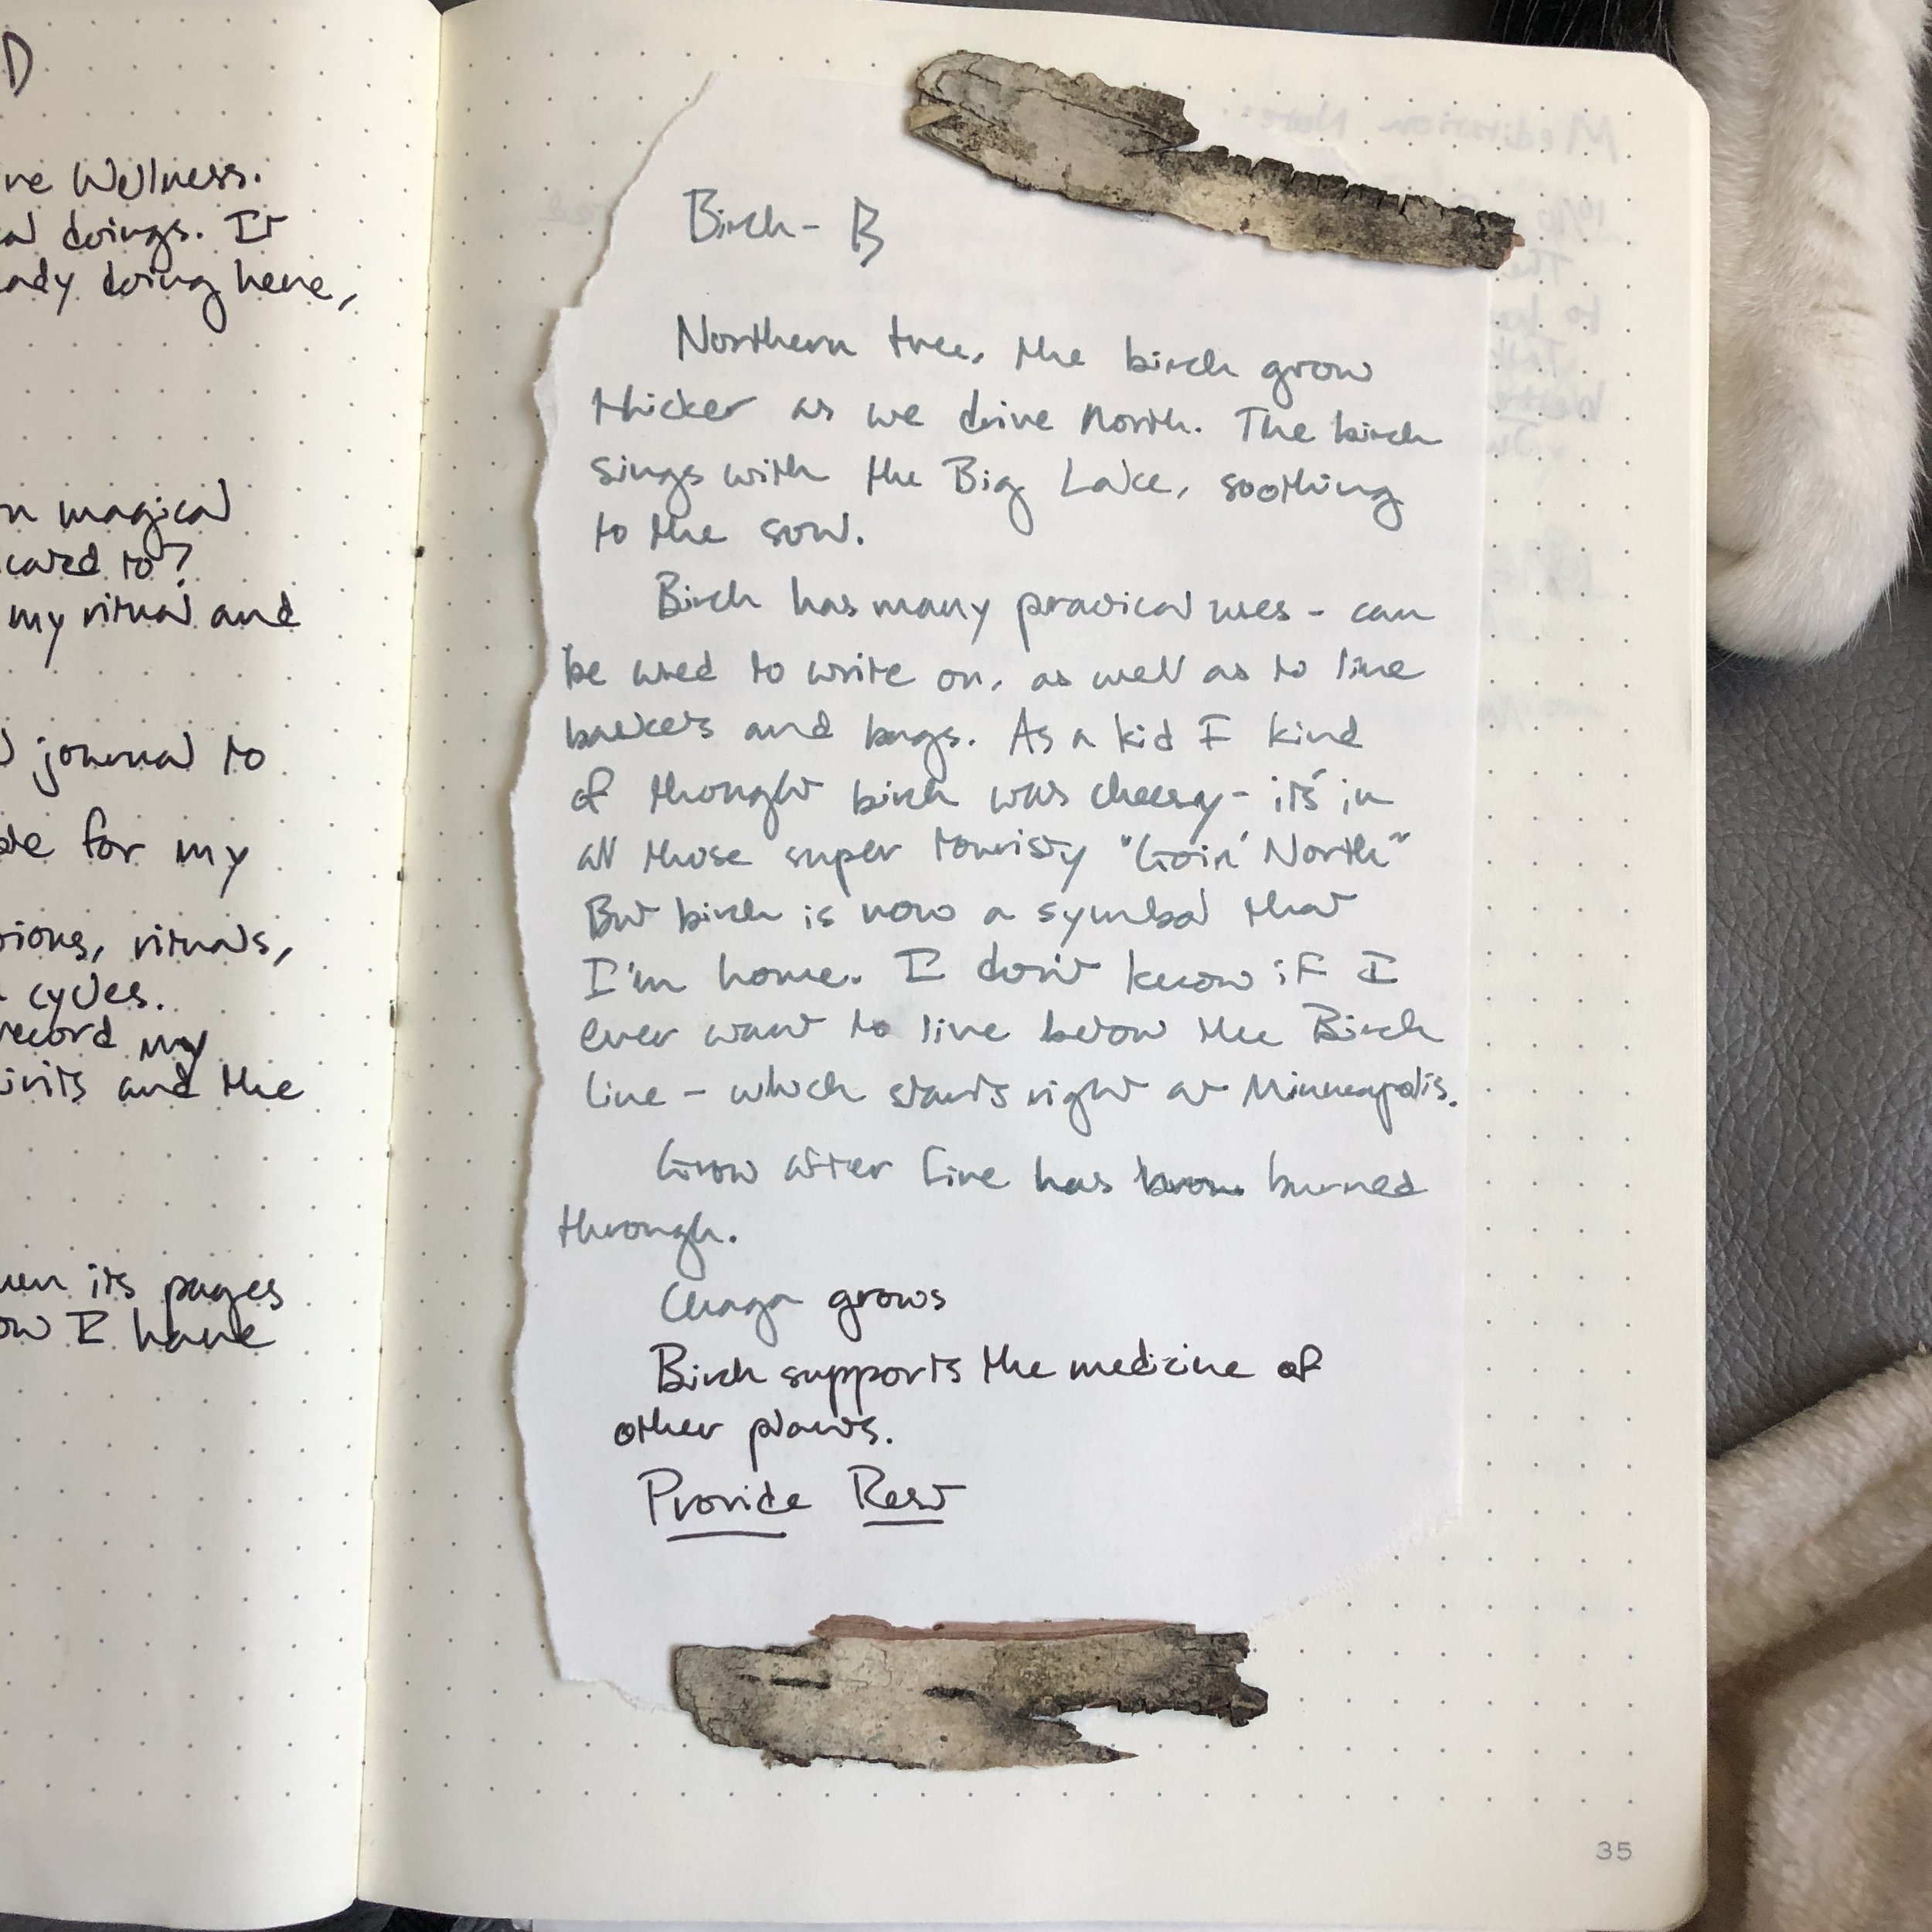 D
ne Wellness.
doings. It
ady doing here,
n magical
card to?
my ritual and
journal to
for my
rituals,
cycles.
record my
and the
its pages
I have
Birch - B
Northern tree, the birch grow
thicker as we drive North. The birch
sings with the Big Lake, soothing
to the soul.
Birch has many practical uses - can
be used to write on, as well as to line
baskets and bags. As a kid I kind
of thought birch was cheesy - it's in
all those super touristy "Goin' North"
But birch is now a symbol that
I'm home. I don't know if I
ever want to live below the Birch
line - which starts right at Minneapolis.
Grow after fire has burned
through.
Chaga grows
Birch supports the medicine of
other plants.
Provide Rest
35